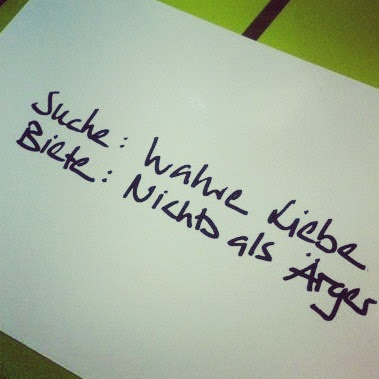 Suche: Wahre Liebe
Biete: Nichts als Ärger